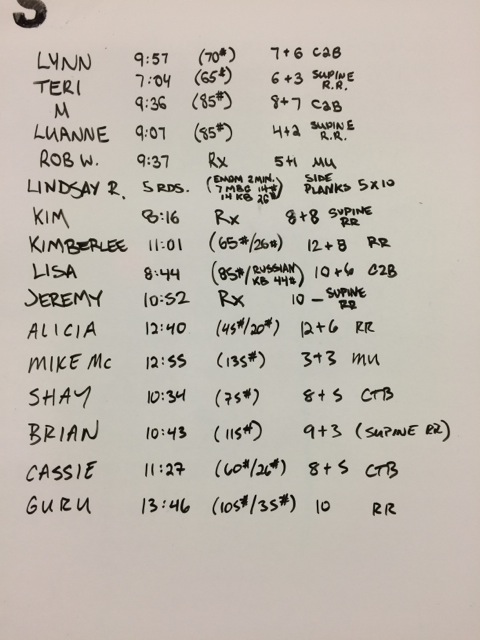 S
LYNN 9:57 (70#) 7+6 C2B
TERI 7:04 (65#) 6+3 SUPINE R.R.
M 9:36 (85#) 8+7 C2B
LUANNE 9:07 (85#) 4+2 SUPINE R.R.
ROB W. 9:37 Rx 5+1 MU
LINDSAY R. 5 RDS. (EMOM 2 MIN. 7 MBC 14# 14 KB 26#) SIDE PLANKS 5x10
KIM 8:16 Rx 8+8 SUPINE RR
KIMBERLEE 11:01 (65#/26#) 12+8 RR
LISA 8:44 (85#/RUSSIAN KB 44#) 10+6 C2B
JEREMY 10:52 Rx 10 - SUPINE RR
ALICIA 12:40 (45#/20#) 12+6 RR
MIKE Mc 12:55 (135#) 3+3 MU
SHAY 10:34 (75#) 8+5 CTB
BRIAN 10:43 (115#) 9+3 (SUPINE RR)
CASSIE 11:27 (60#/26#) 8+5 CTB
GURU 13:46 (105#/35#) 10 RR